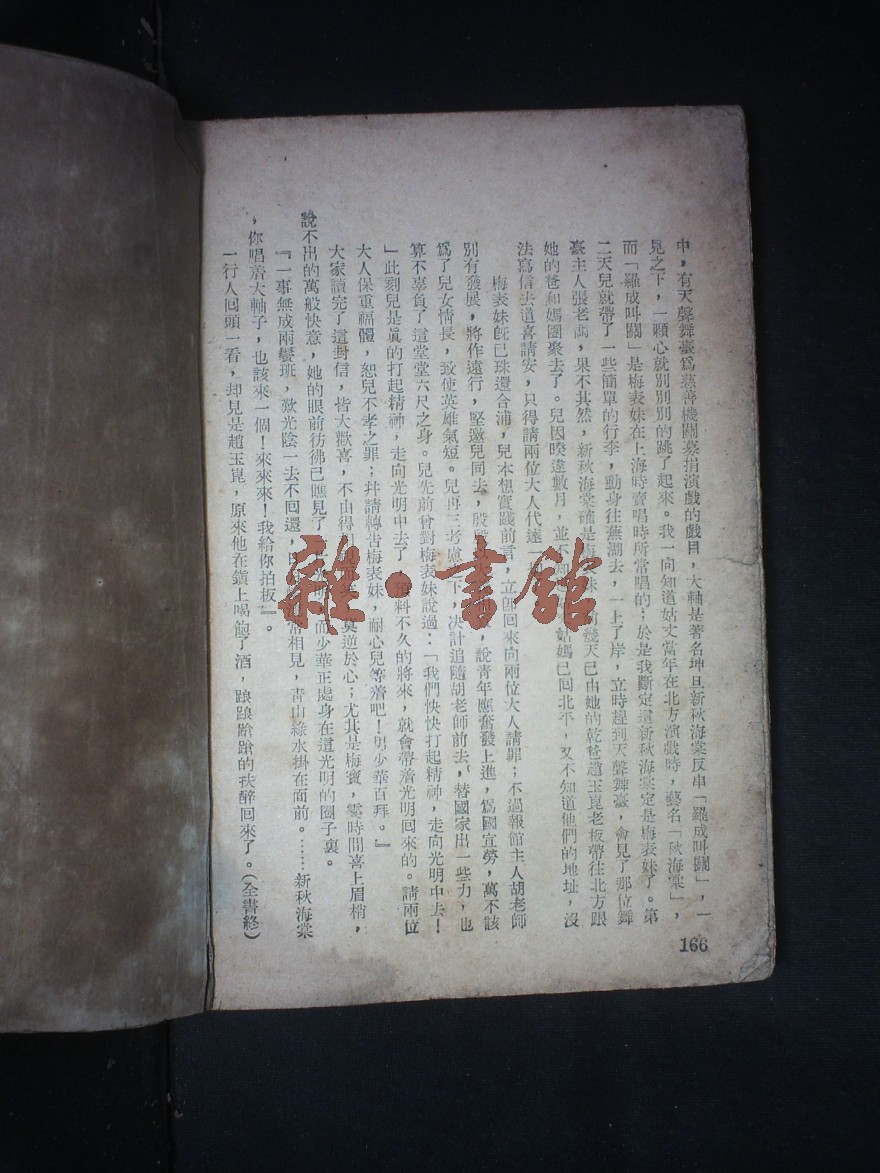 中，有天聲舞臺爲慈善機關募捐演戲的戲目，大軸是著名坤旦新秋海棠反串「羅成叫關」，一
見之下，一顆心就別別別的跳了起來。我一向知道姑丈當年在北方演戲時，藝名「秋海棠」，
而「羅成叫關」是梅表妹在上海時賣唱時所常唱的；於是我斷定這新秋海棠定是梅表妹了。第
二天兒就帶了一些簡單的行李，動身往蕪湖去，一上了岸，立時趕到天聲舞臺，會見了那位舞
臺主人張老闆，果不其然，新秋海棠確是梅表妹 前幾天已由她的乾爸趙玉崑老板帶往北方跟
她的爸和媽團聚去了。兒因暌違數月，並不 姑媽已回北平，又不知道他們的地址，沒
法寫信去道喜請安，只得請兩位大人代達
梅表妹旣已珠還合浦，兒本想實踐前言，立卽回來向兩位大人請罪；不過報館主人胡老師
別有發展，將作遠行，堅邀兒同去，殷殷 說靑年應奮發上進，爲國宣勞，萬不該
爲了兒女情長，致使英雄氣短。兒再三考慮之下，决計追隨胡老師前去，替國家出一些力，也
算不辜負了這堂堂六尺之身。兒先前曾對梅表妹說過：「我們快快打起精神，走向光明中去！
」此刻兒是眞的打起精神，走向光明中去了， 料不久的將來，就會帶着光明回來的。請兩位
大人保重福體，恕兒不孝之罪；幷請轉告梅表妹，耐心兒等着吧！男少華百拜。』
大家讀完了這封信，皆大歡喜，不由得 莫逆於心；尤其是梅寶，霎時間喜上眉梢，
說不出的萬般快意，她的眼前彷彿已瞧見了 光明 而少華正處身在這光明的圈子裏。
『一事無成兩鬢班，歎光陰一去不回還， 常相見，靑山綠水掛在面前。……新秋海棠
，你唱着大軸子，也該來一個！來來來！我給你拍板』。
一行人回頭一看，却見是趙玉崑，原來他在鎭上喝飽了酒，踉踉蹌蹌的扶醉回來了。（全書終）
166
雜·書館